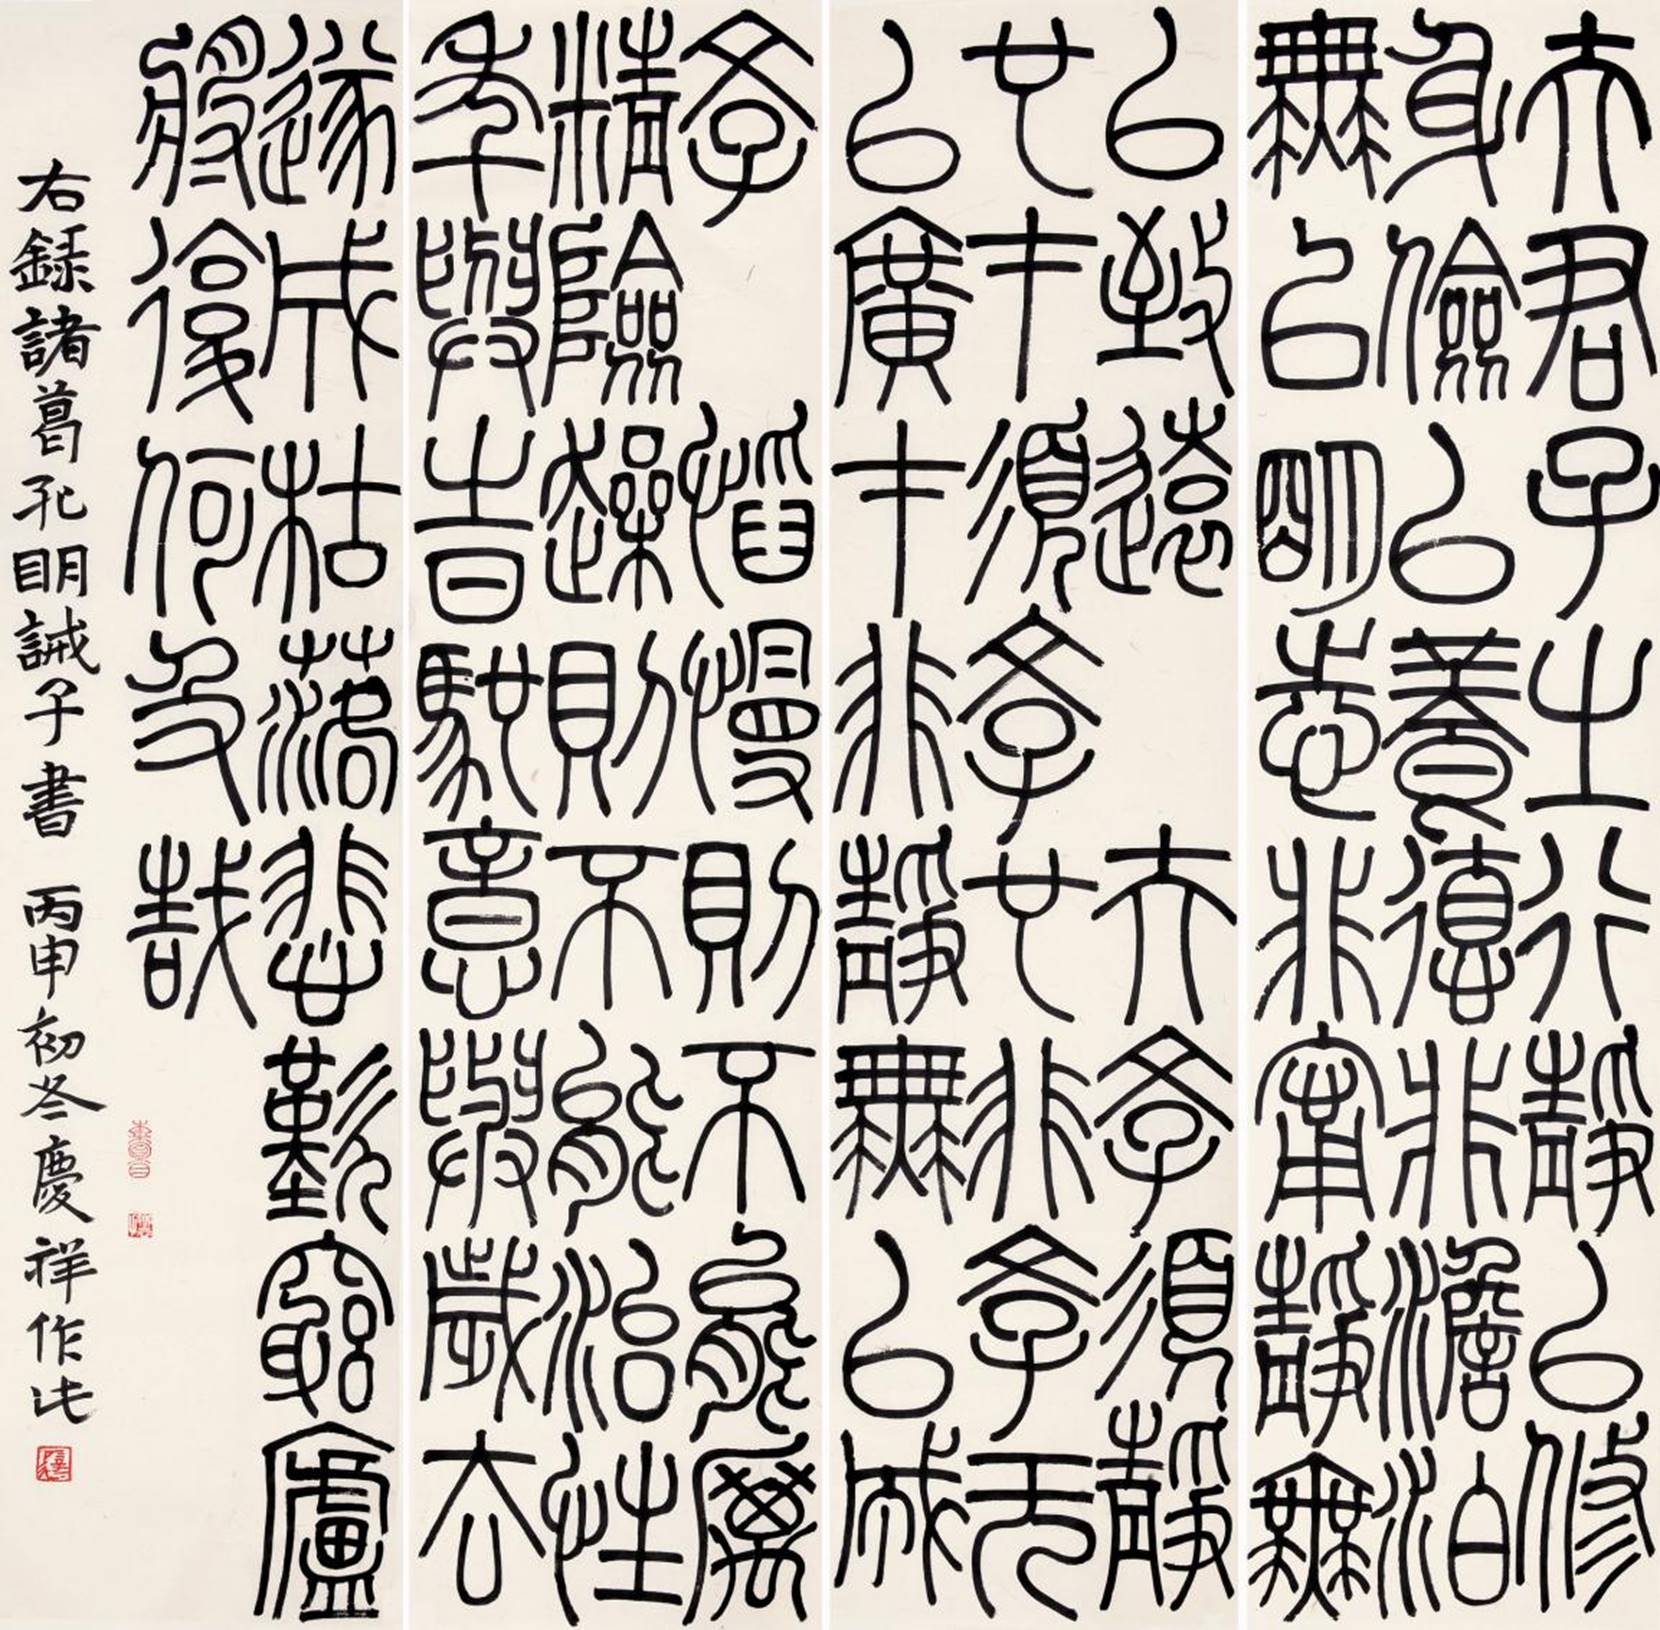 夫君子之行靜以修
身儉以養德非澹泊
無以明志非寧靜無
以致遠夫學須靜
也才須學也非學无
以廣才非靜無以成
學慆慢則不能厲
精險躁則不能治性
年與時馳意與歲去
遂成枯落悲歎窮廬
將復何及哉
右錄諸葛孔明誡子書 丙申初冬慶祥作此